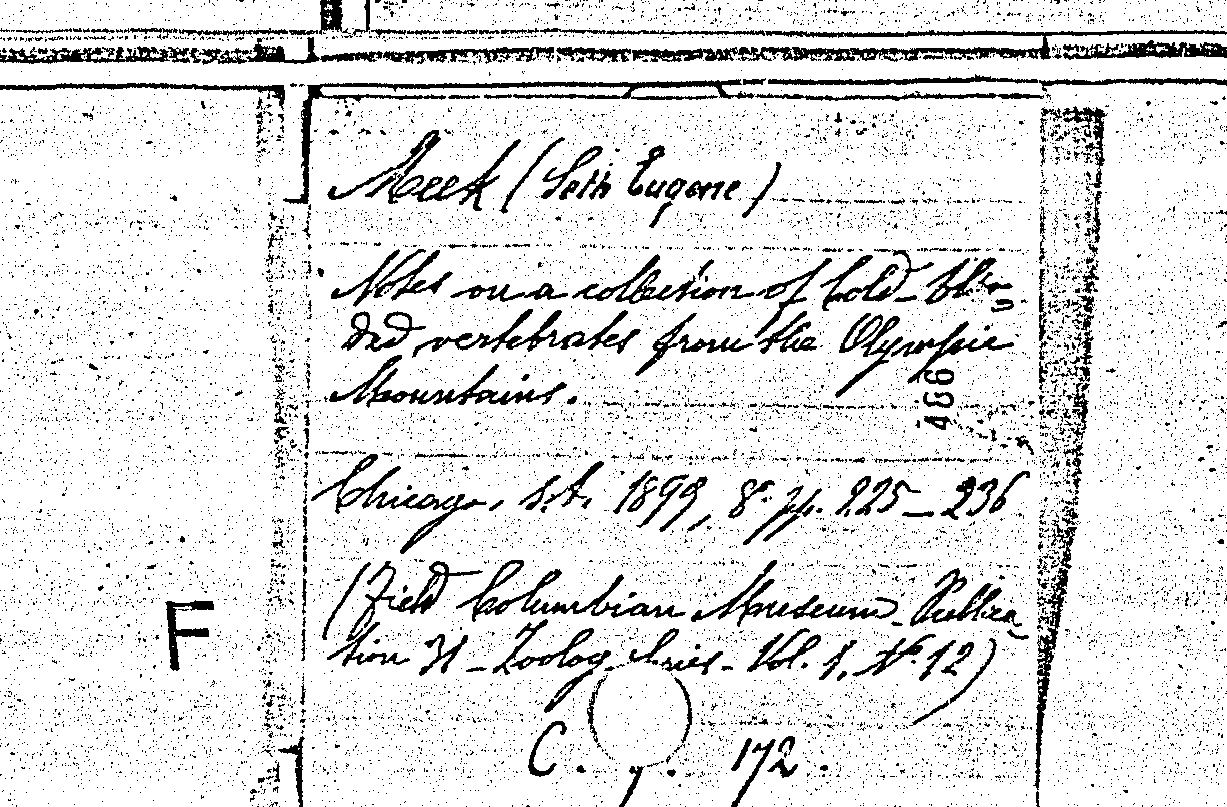 Meek (Seth Eugene)
Notes on a collection of Cold-bloo-
ded vertebrates from the Olympic
Mountains.
486
Chicago, s.t. 1899, 8º pp. 225-236
(Field Columbian Museum - Publica-
tion 31 - Zoolog. Series - Vol. 1. Nº 12)
F
C. 172.